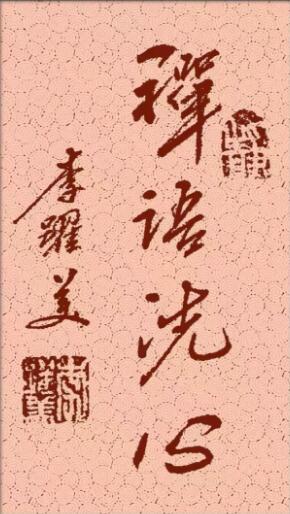 禪語洗心
李躍美